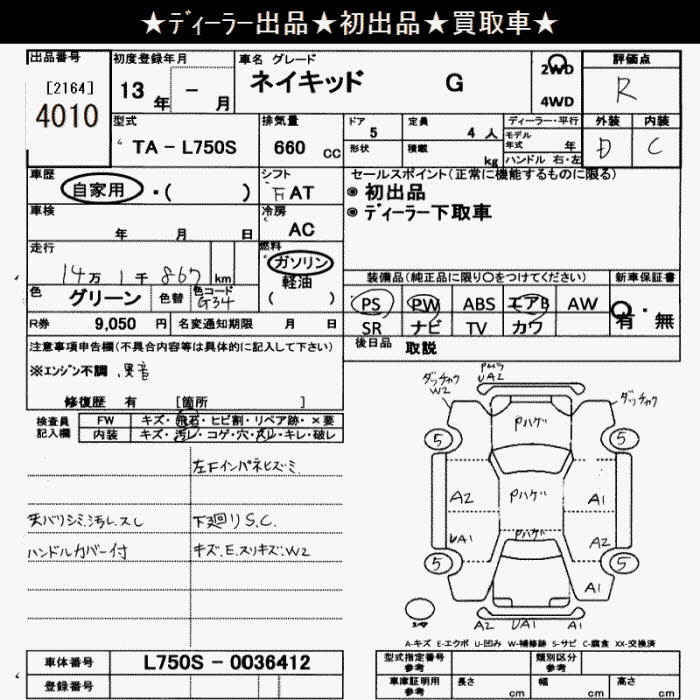 ★ディーラー出品★初出品★買取車★
出品番号
[2164]
4010
初度登録年月
13 年 - 月
車名 グレード
ネイキッド G
2WD
4WD
評価点
R
外装 内装
D C
型式
TA - L750S
排気量
660 cc
ドア
5
定員
4 人
形状
積載
kg
ディーラー・平行
モデル
年式 年
ハンドル 右・左
車歴
自家用・( )
シフト
F AT
セールスポイント(正常に機能するものに限る)
◎ 初出品
◎ ディーラー下取車
車検
年 月 日
冷房
AC
走行
14万 1千 867 km
燃料
ガソリン
軽油
( )
色 グリーン
色替
色コード
G34
装備品(純正品に限り○をつけてください)
PS PW ABS エアB AW
SR ナビ TV カワ
新車保証書
有・無
R券 9,050 円
名変通知期限 月 日
後日品 取説
注意事項申告欄(不具合内容等は具体的に記入して下さい)
※エンジン不調 異音
修復歴 有 [箇所 ]
検査員
記入欄
FW キズ・飛石・ヒビ割・リペア跡・×要
内装 キズ・汚レ・コゲ・穴・スレ・キレ・破レ
左Fインパネヒズミ
天バリシミ.汚レ.スレ
下廻リS.C.
ハンドルカバー付
キズ.E.スリキズ.W2
ダッチャク
W2
UA2
ダッチャク
Pハゲ
5 5
Pハゲ
A2 A1
Pハゲ
UA1 A2
5 5
A1
A2 UA1 A1
A-キズ E-エクボ U-凹み W-補修跡 S-サビ C-腐食 XX-交換済
車体番号 L750S - 0036412
登録番号
型式指定番号
参考
類別区分
参考
車庫証明用
参考
長さ cm
幅 cm
高さ cm